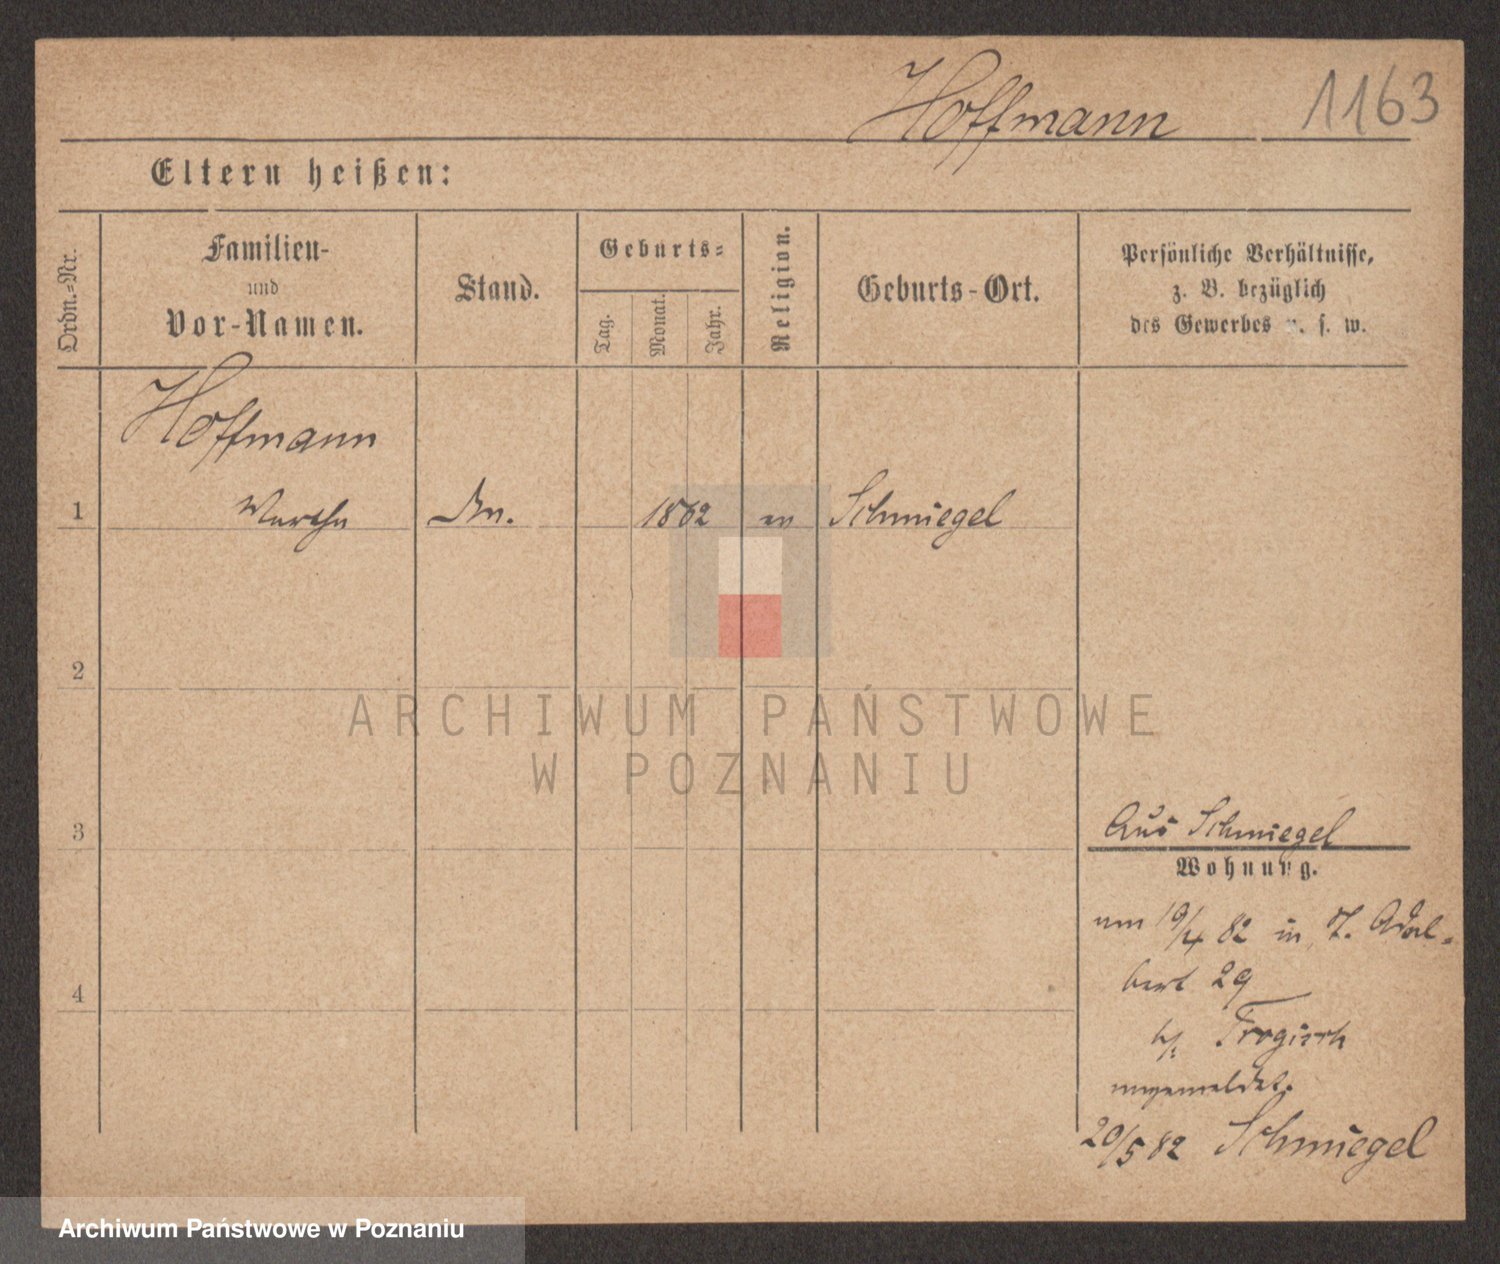 Hoffmann 1163
Eltern heißen:
Ordn.=Nr.
Familien-
und
Vor-Namen.
Stand.
Geburts=
Tag.
Monat.
Jahr.
Religion.
Geburts-Ort.
Persönliche Verhältnisse,
z. B. bezüglich
des Gewerbes u. s. w.
Hoffmann
1 1862 Schmiegel
2
ARCHIWUM PAŃSTWOWE
W POZNANIU
3
Aus Schmiegel
Wohnung.
am 19/4 82 in Adal-
bert 29
4
angemeldet.
20/5 82 Schmiegel
Archiwum Państwowe w Poznaniu